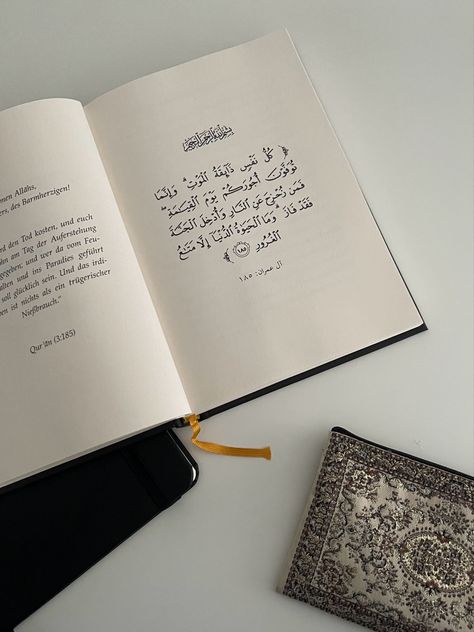 Allāhs,
des Barmherzigen!
den Tod kosten, und euch
am Tag der Auferstehung
gegeben, und wer da vom Feu-
und ins Paradies geführt
soll glücklich sein. Und das irdi-
ist nichts als ein trügerischer
Nießbrauch.“
Qur'ān (3:185)
بِسْمِ اللَّهِ الرَّحْمَٰنِ الرَّحِيمِ
﴿ كُلُّ نَفْسٍ ذَآئِقَةُ ٱلْمَوْتِ ۗ وَإِنَّمَا
تُوَفَّوْنَ أُجُورَكُمْ يَوْمَ ٱلْقِيَٰمَةِ ۖ
فَمَن زُحْزِحَ عَنِ ٱلنَّارِ وَأُدْخِلَ ٱلْجَنَّةَ
فَقَدْ فَازَ ۗ وَمَا ٱلْحَيَوٰةُ ٱلدُّنْيَآ إِلَّا مَتَٰعُ
ٱلْغُرُورِ ١٨٥ ﴾
آل عمران: ١٨٥